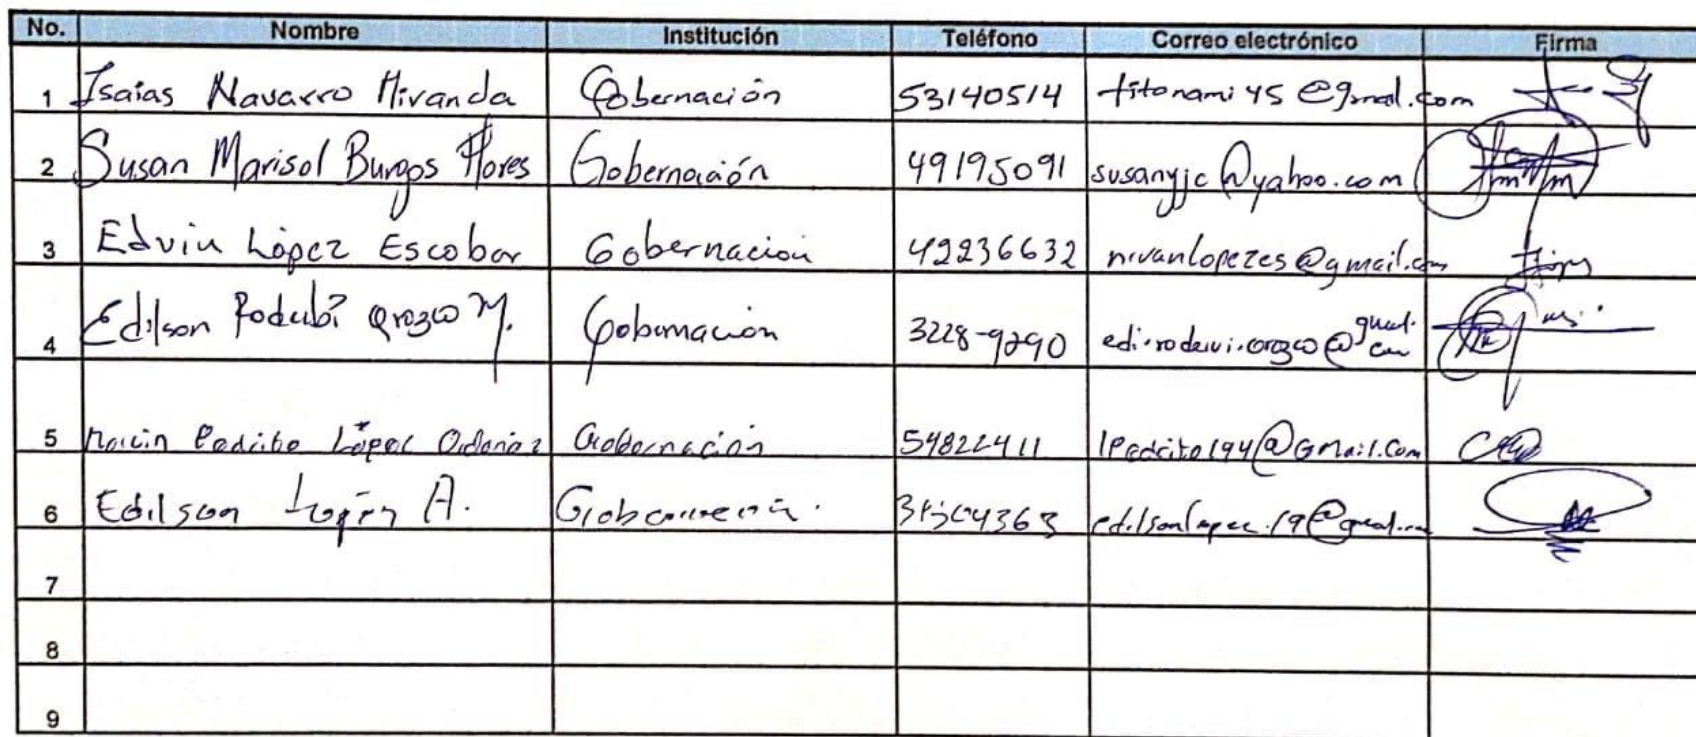 No. Nombre Institución Teléfono Correo electrónico Firma
1 Isaias Navarro Miranda Gobernación 53140514 titonami45@gmail.com
2 Susan Marisol Burgos Flores Gobernación 49195091 susanyjc@yahoo.com
3 Edvin López Escobar Gobernación 42236632 nivanlopezes@gmail.com
4 Edilson Orozco M. Gobernación 3228-9290
5 López Gobernación 54822411 lpedrito194@Gmail.com
6 Edilson López A. Gobernación. edilsonlopez.19@gmail.com
7
8
9